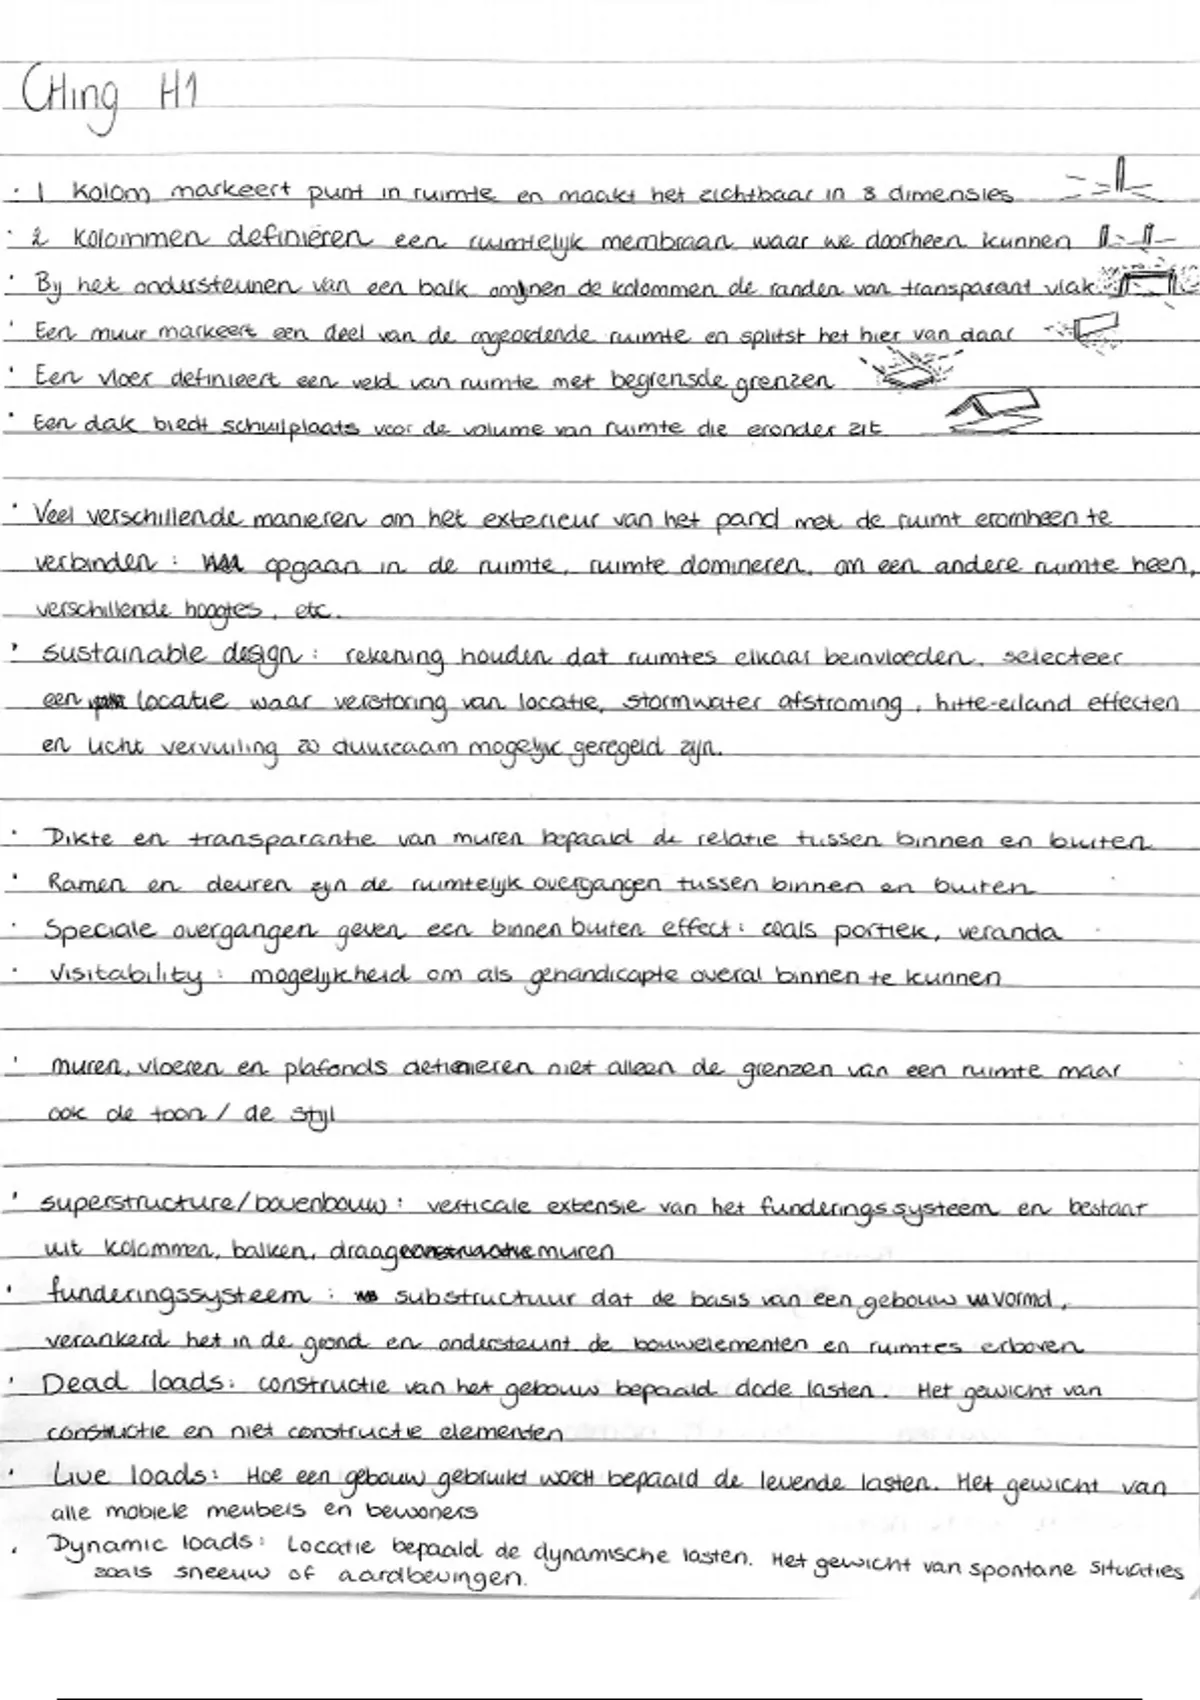 CHing H1
· 1 kolom markeert punt in ruimte en maakt het zichtbaar in 3 dimensies
· 2 kolommen definiëren een ruimtelijk membraan waar we doorheen kunnen
· Bij het ondersteunen van een balk omlijnen de kolommen de randen van transparant vlak
· Een muur markeert een deel van de ongeordende ruimte en splitst het hier van daar
· Een vloer definieert een veld van ruimte met begrensde grenzen
· Een dak biedt schuilplaats voor de volume van ruimte die eronder zit
· Veel verschillende manieren om het exterieur van het pand met de ruimt eromheen te
verbinden: opgaan in de ruimte, ruimte domineren, om een andere ruimte heen,
verschillende hoogtes, etc.
· sustainable design: rekening houden dat ruimtes elkaar beinvloeden. selecteer
een locatie waar verstoring van locatie, stormwater afstroming, hitte-eiland effecten
en licht vervuiling zo duurzaam mogelijk geregeld zijn.
· Dikte en transparantie van muren bepaald de relatie tussen binnen en buiten
· Ramen en deuren zijn de ruimtelijk overgangen tussen binnen en buiten
· Speciale overgangen geven een binnen buiten effect: zoals portiek, veranda
· Visitability: mogelijkheid om als gehandicapte overal binnen te kunnen
· muren, vloeren en plafonds definieren niet alleen de grenzen van een ruimte maar
ook de toon / de stijl
· superstructure/bovenbouw: verticale extensie van het funderingssysteem en bestaat
uit kolommen, balken, draagmuren
· funderingssysteem: substructuur dat de basis van een gebouw vormd,
verankerd het in de grond en ondersteunt de bouwelementen en ruimtes erboven
· Dead loads: constructie van het gebouw bepaald dode lasten. Het gewicht van
constructie en niet constructie elementen
· Live loads: Hoe een gebouw gebruikt wordt bepaald de levende lasten. Het gewicht van
alle mobiele meubels en bewoners
· Dynamic loads: Locatie bepaald de dynamische lasten. Het gewicht van spontane situaties
zoals sneeuw of aardbevingen.